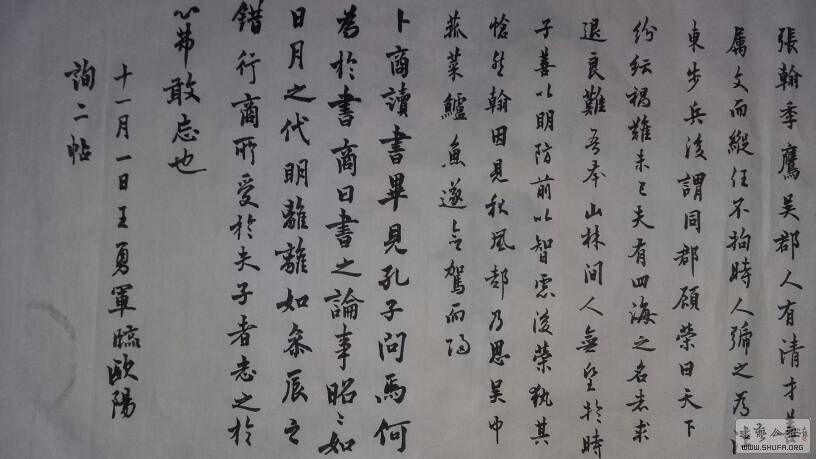 張翰季鷹吳郡人有清才善
属文而縱任不拘時人號之為江
東步兵後謂同郡顧榮曰天下
紛紜禍難未已夫有四海之名者求
退良難吾本山林間人無望於時
子善以明防前以智慮後榮執其
愴然翰因見秋風起乃思吳中
菰菜鱸魚遂命駕而歸
卜商讀書畢見孔子問焉何
為於書商曰書之論事昭〻如
日月之代明離離如参辰之
錯行商所受於夫子者志之於
心弗敢忘也
十一月一日王勇軍臨歐陽
詢二帖
WWW.SHUFA.ORG